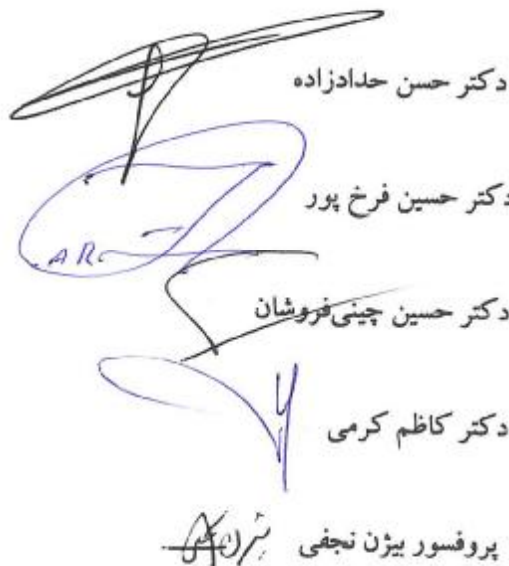 دکتر حسن حدادزاده
دکتر حسین فرخ پور
AR
دکتر حسین چینی‌فروشان
دکتر کاظم کرمی
پروفسور بیژن نجفی